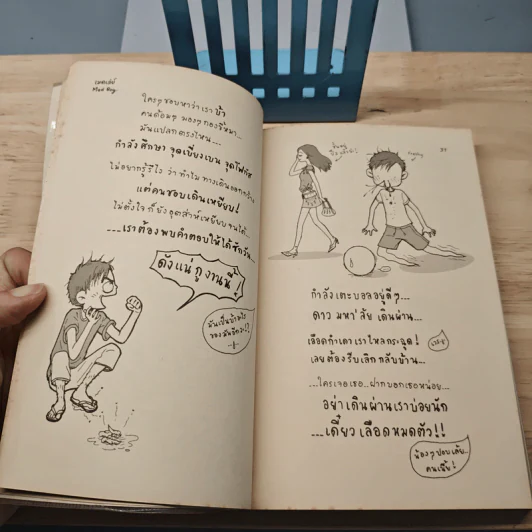 แมดบอย
Mad Boy
ใครๆชอบหาว่าเราบ้า
คนด้อมๆ มองๆ กองขี้หมา...
มันแปลกตรงไหน...
กำลังศึกษา จุดเบี่ยงเบน จุดโฟกัส
ไม่อยากรู้รึไง ว่าทำไม ทางเดินออกกว้าง
แต่คนชอบเดินเหยียบ!
ไม่ตั้งใจ ก็ยังอุตส่าห์เหยียบจนได้...
...เราต้องพบคำตอบให้ได้ซักวัน...
ดังแน่ กูงานนี้!
37
กำลังเตะบอลอยู่ดีๆ...
ดาว มหา'ลัย เดินผ่าน...
เลือดกำเดาเราไหลกระฉูด!
เลยต้องรีบเลิก กลับบ้าน...
...ใครเจอเธอ...ฝากบอกเธอหน่อย...
อย่าเดินผ่านเราบ่อยนัก
...เดี๋ยวเลือดหมดตัว!!
คนเนี้ย!